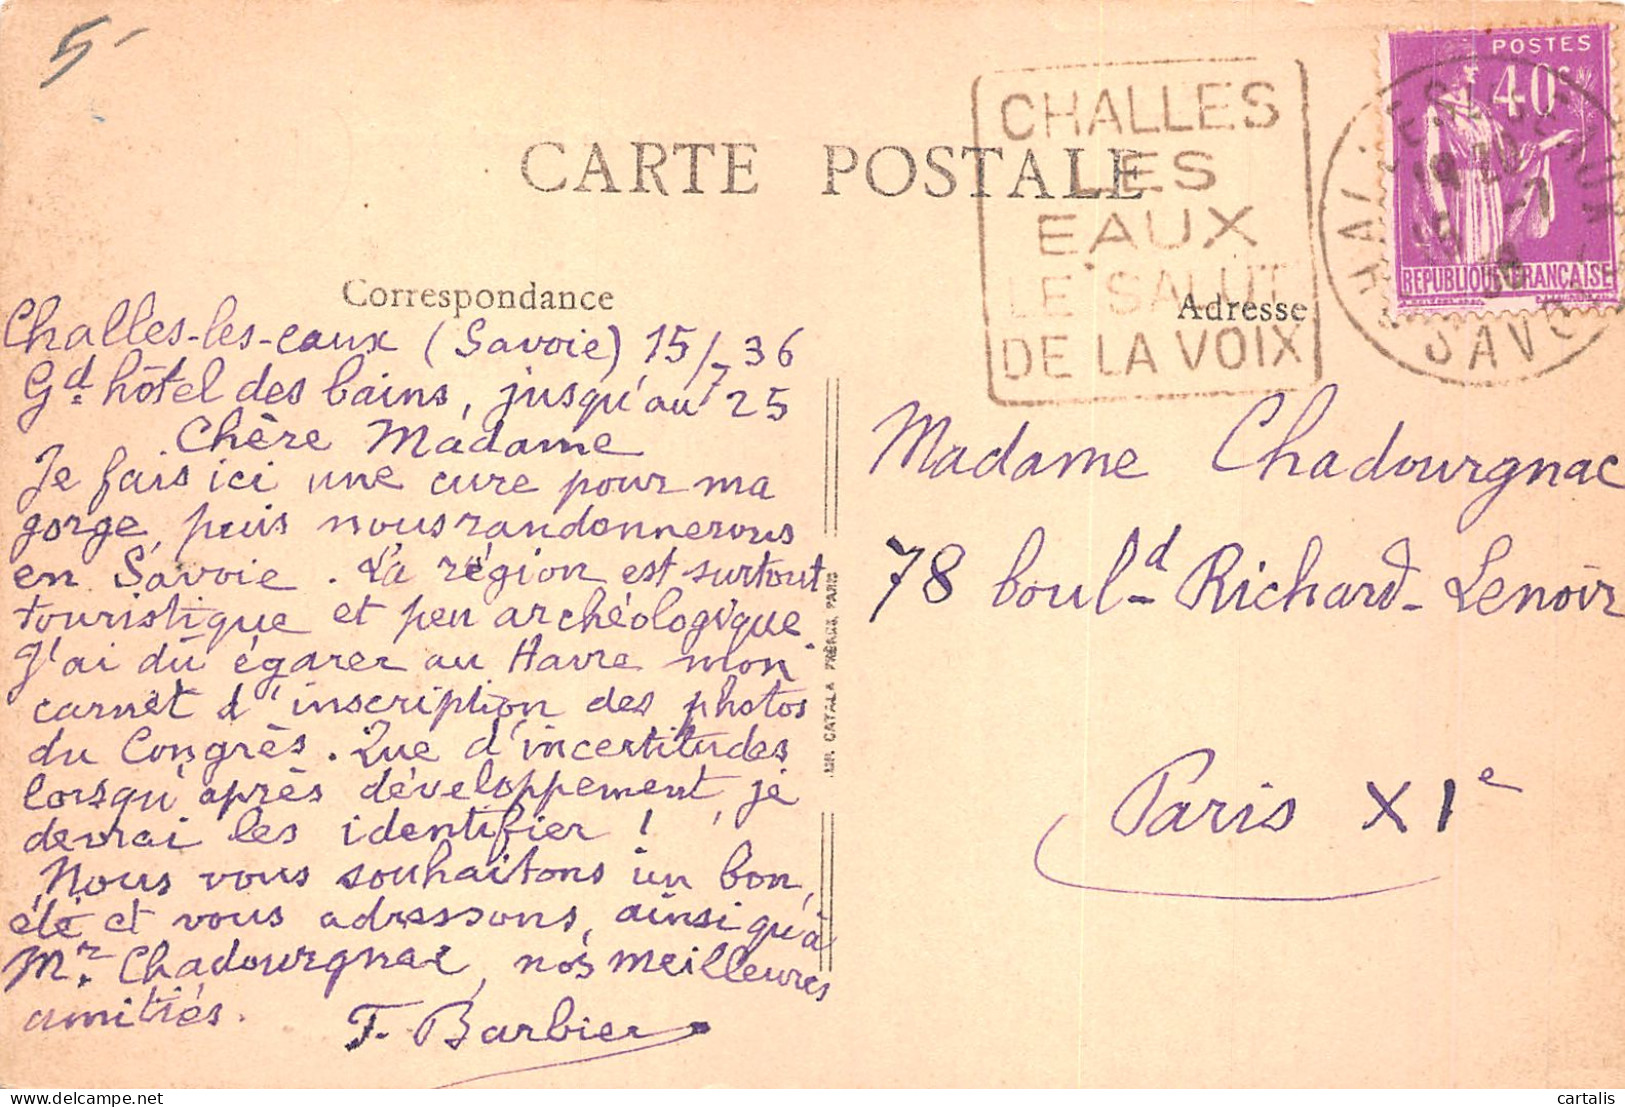 5-
CARTE POSTALE
CHALLES
LES
EAUX
LE SALUT
DE LA VOIX
POSTES
40c
REPUBLIQUE FRANÇAISE
SAVOIE
Correspondance
Adresse
Challes-les-eaux (Savoie) 15/7 36
Gd. hôtel des bains, jusqu'au 25
Chère Madame
Je fais ici une cure pour ma
gorge, puis nous randonnerons
en Savoie. La région est surtout
touristique et peu archéologique.
J'ai dû égarer au Havre mon
carnet d'inscription des photos
du Congrès. Que d'incertitudes
lorsqu'après développement, je
devrai les identifier !
Nous vous souhaitons un bon
été et vous adressons, ainsi qu'à
Mr. Chadourgnac, nos meilleures
amitiés.
F. Barbier
Madame Chadourgnac
78 boul-d Richard-Lenoir
Paris XIe
IMP. CATALA FRÈRES, PARIS
delcampe.net
cartalis